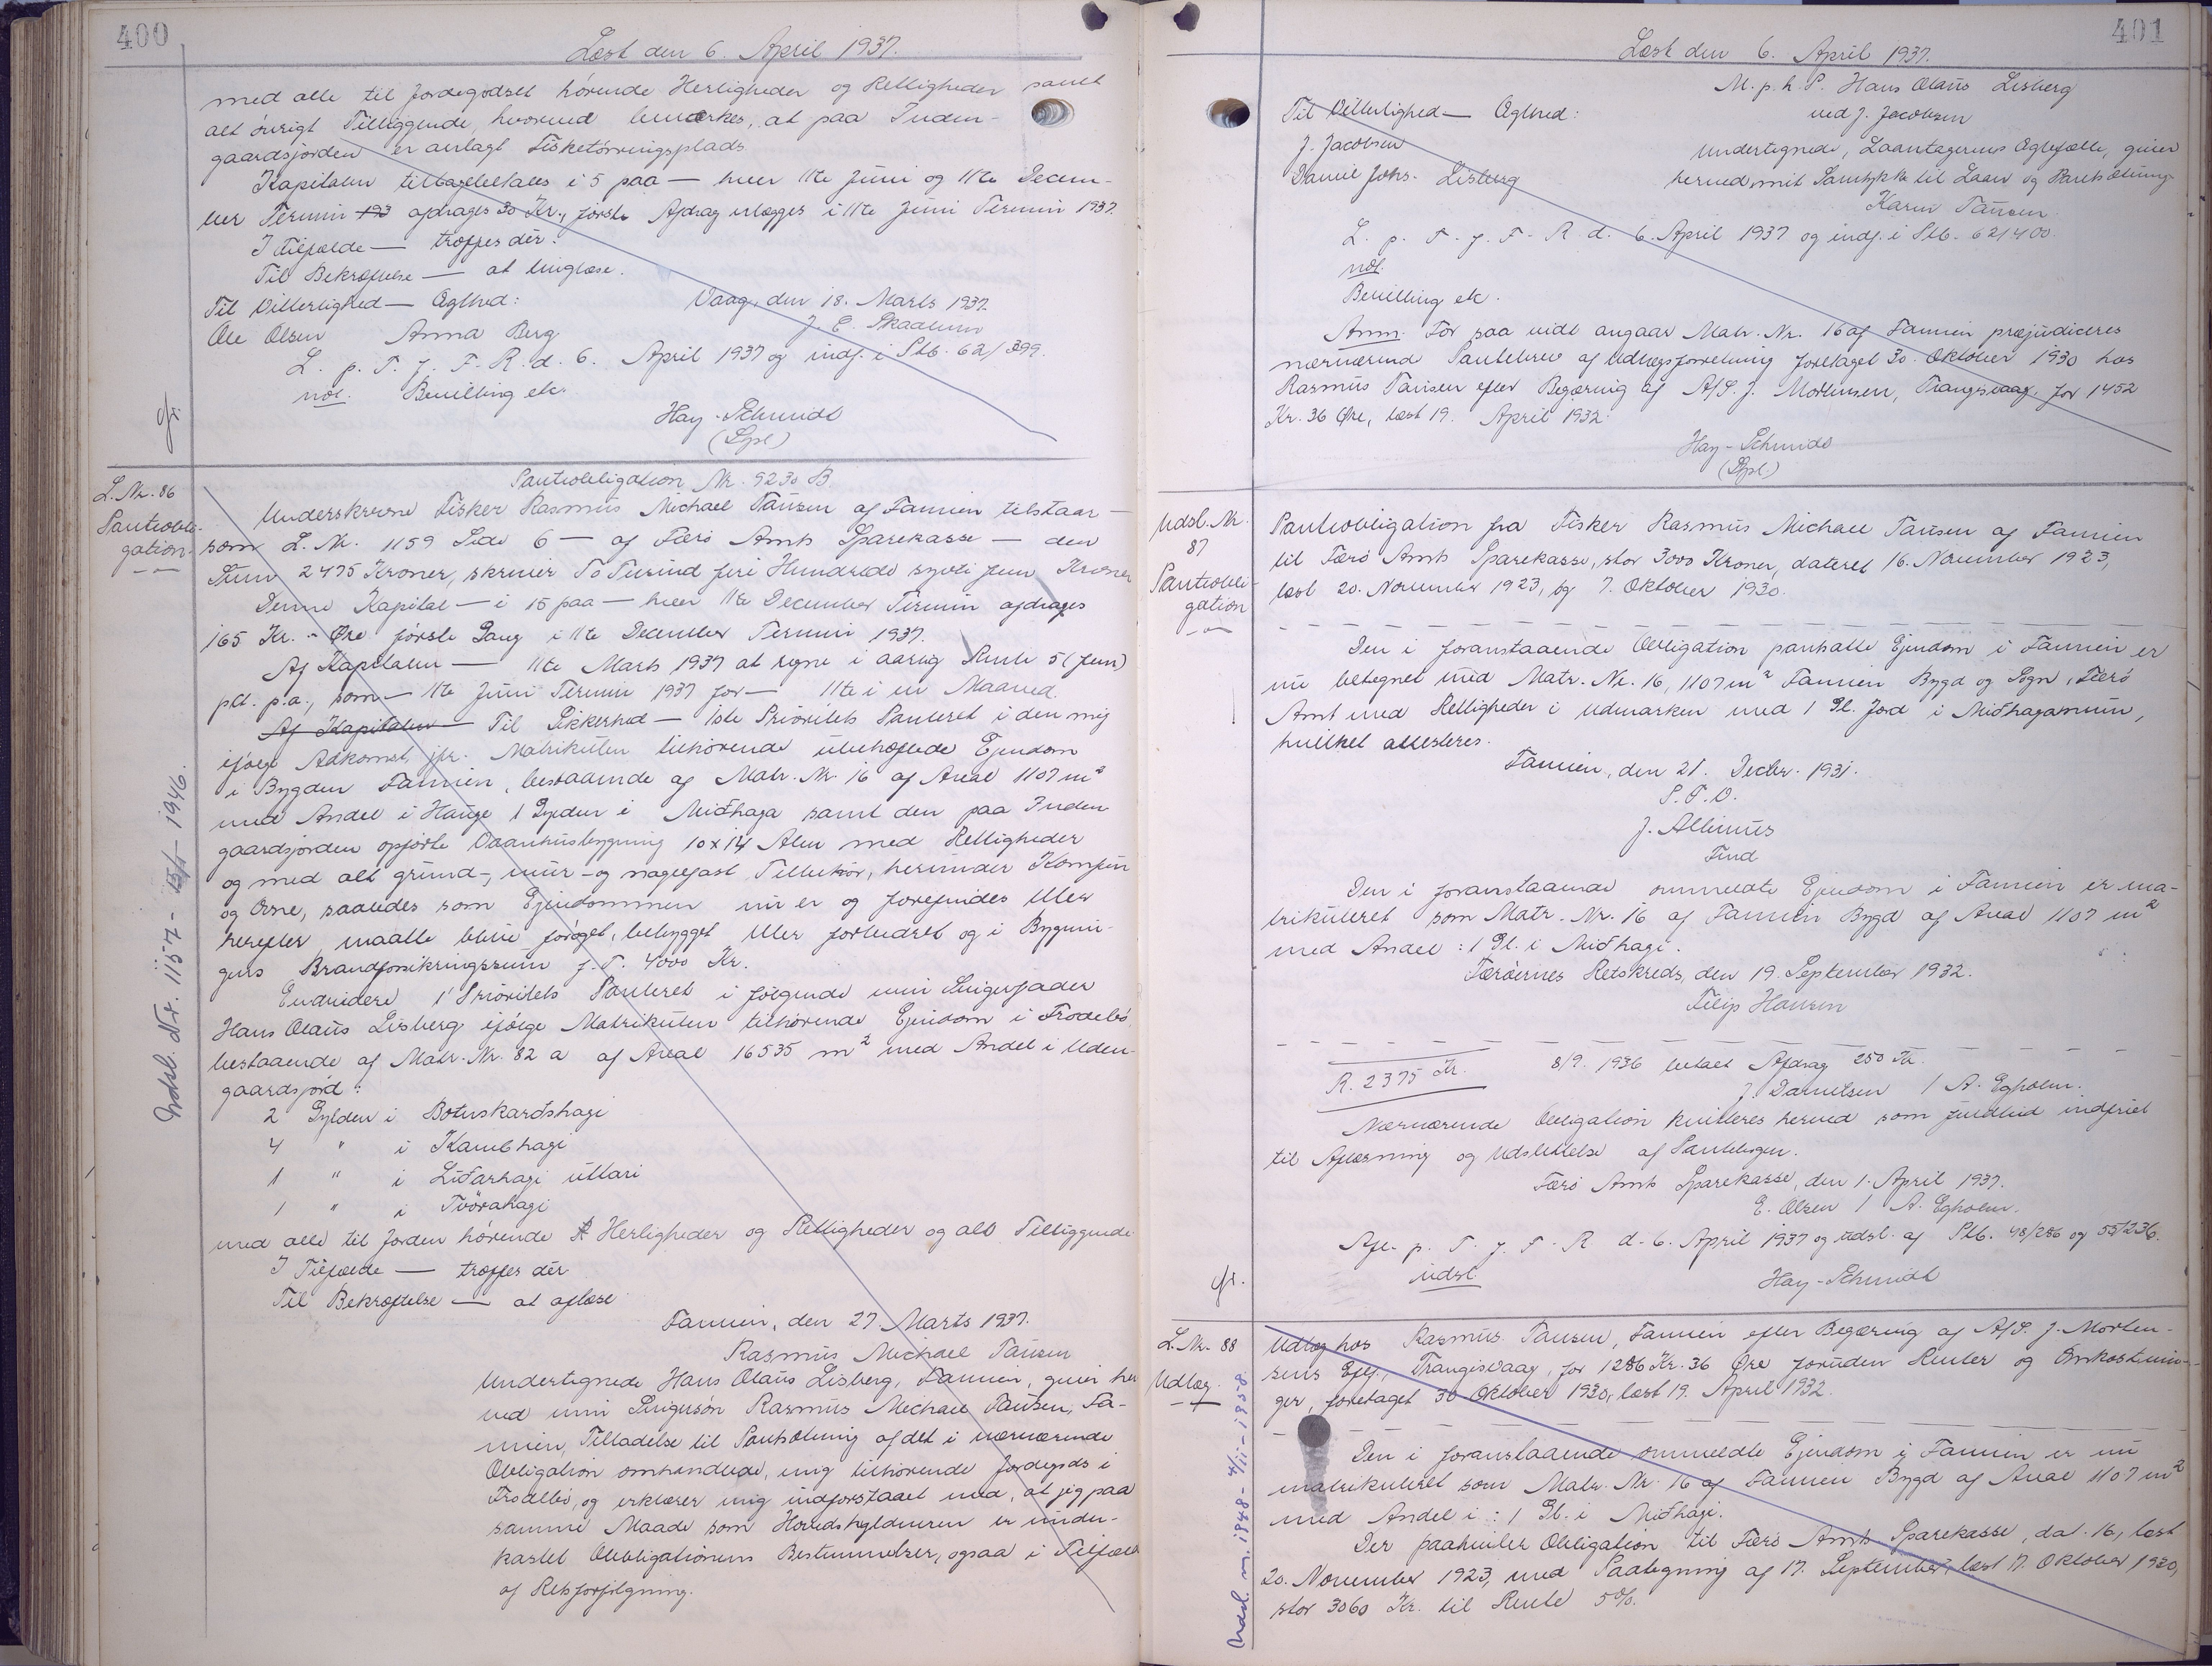 400
Læst den 6. April 1937.
med alle til Jordegodset hørende Herligheder og Rettigheder samt
alt øvrigt Tilliggende, hvorved bemærkes, at paa Inden-
gaardsjorden er anlagt Fisketørringsplads.
Kapitalen tilbagebetales i 5 paa — hver 11te Juni og 11te Decem-
ber Termin 193 afdrages 30 Kr., første Afdrag erlægges i 11te Juni Termin 1937.
I Tilfælde — træffes dér.
Til Bekræftelse — at tinglæse.
Til Vitterlighed — Ægthed: Vaag, den 18. Marts 1937.
Ole Olsen Anna Berg J. E. Skaalum
L. p. T. f. F. R. d. 6. April 1937 og indf. i Ptb. 62/399.
not. Bevilling etc.
Hay-Schmidt
(Spl.)
gr.
L. Nr. 86
Pantobli-
gation.
Pantobligation Nr. 9230 B.
Underskrevne Fisker Rasmus Michael Tausen af Famien tilstaar —
som L. Nr. 1159 Side 6 — af Færø Amts Sparekasse — den
Sum 2475 Kroner, skriver To Tusind fire Hundrede syvti fem Kroner
Denne Kapital — i 15 paa — hver 11te December Termin afdrages
165 Kr. - Øre første Gang i 11te December Termin 1937.
Af Kapitalen — 11te Marts 1937 at regne i aarlig Rente 5 (fem)
pct. p.a., som — 11te Juni Termin 1937 for — 11te i en Maaned.
Af Kapitalen — Til Sikkerhed — 1ste Prioritets Panteret i den mig
ifølge Adkomst, jfr. Matrikulen tilhørende ubehæftede Ejendom
i Bygden Famien, bestaaende af Matr. Nr. 16 af Areal 1107 m²
med Andel i Hauge 1 Gylden i Miðhaga samt den paa Inden
gaardsjorden opførte Vaanhusbygning 10x14 Alen med Rettigheder
og med alt grund-, mur- og nagelfast Tilbehør, herunder Komfur
og Ovne, saaledes som Ejendommen nu er og forefindes eller
herefter maatte blive forøget, bebygget eller forbedret og i Bygnin-
gens Brandforsikringssum f. T. 4000 Kr.
Endvidere 1' Prioritets Panteret i følgende min Svigerfader
Hans Olaus Lisberg ifølge Matrikulen tilhørende Ejendom i Frodebø
bestaaende af Matr. Nr. 82 a af Areal 16535 m² med Andel i Uden-
gaardsjord:
2 Gylden i Botnskarðshagi
4 " i Kambhagi
1 " i Liðarhagi uttari
1 " i Tvörahagi
med alle til Jorden hørende Herligheder og Rettigheder og alt Tilliggende
I Tilfælde — træffes dér
Til Bekræftelse — at aflæse
Famien, den 27. Marts 1937.
Rasmus Michael Tausen
Undertegnede Hans Olaus Lisberg, Famien, giver her
ved min Svigersøn Rasmus Michael Tausen, Fa-
mien, Tilladelse til Pantsætning af det i nærværende
Obligation omhandlede, mig tilhørende Jordegods i
Frodebø, og erklærer mig indforstaaet med, at jeg paa
samme Maade som Hovedskyldneren er under-
kastet Obligationens Bestemmelser, ogsaa i Tilfælde
af Retsforfølgning.
Udsl. Nr. 1157 - 15/4 - 1946.
401
Læst den 6. April 1937.
M. p. h. P. Hans Olaus Lisberg
Til Vitterlighed — Ægthed: ved J. Jacobsen
J. Jacobsen Undertegnede, Laantagerens Ægtefælle, giver
Daniel Johs. Lisberg herved mit Samtykke til Laan og Pantsætning
Karin Tausen
L. p. T. f. F. R. d. 6. April 1937 og indf. i Ptb. 62/400.
not.
Bevilling etc.
Anm. For saa vidt angaar Matr. Nr. 16 af Famien præjudiceres
nærværende Pantebrev af Udlægsforretning foretaget 30. Oktober 1930 hos
Rasmus Tausen efter Begæring af A/S. J. Mortensen, Trangisvaag, for 1452
Kr. 36 Øre, læst 19. April 1932.
Hay-Schmidt
(Spl.)
Udsl. Nr.
87
Pantobli-
gation
Pantobligation fra Fisker Rasmus Michael Tausen af Famien
til Færø Amts Sparekasse, stor 3000 Kroner, dateret 16. November 1923,
læst 20. November 1923, og 7. Oktober 1930.
Den i foranstaaende Obligation pantsatte Ejendom i Famien er
nu betegnet med Matr. Nr. 16, 1107 m² Famien Bygd og Sogn, Færø
Amt med Rettigheder i Udmarken med 1 Gl. Jord i Miðhaganum,
hvilket attesteres.
Famien, den 21. Decbr. 1931.
S. T. O.
J. Allinius
Fmd
Den i foranstaaende ommeldte Ejendom i Famien er ma-
trikuleret som Matr. Nr. 16 af Famien Bygd af Areal 1107 m²
med Andel: 1 Gl. i Miðhagi.
Færøernes Retskreds, den 19. September 1932.
Filip Hansen
R. 2375 Kr. 8/9. 1936 betalt Afdrag 250 Kr.
J. Danielsen / A. Egholm.
Nærværende Obligation kvitteres herved som fuldtud indfriet
til Aflæsning og Udslettelse af Pantebogen.
Færø Amts Sparekasse, den 1. April 1937.
E. Olsen / A. Egholm.
Afl. p. T. f. F. R. d. 6. April 1937 og udsl. af Ptb. 48/286 og 55/236.
udsl. Hay-Schmidt
gr.
L. Nr. 88
Udlæg.
Udlæg hos Rasmus Tausen, Famien efter Begæring af A/S. J. Morten-
sens Eftf., Trangisvaag, for 1286 Kr. 36 Øre foruden Renter og Omkostnin-
ger, foretaget 30 Oktober 1930, læst 19. April 1932.
Den i foranstaaende ommeldte Ejendom i Famien er nu
matrikuleret som Matr. Nr. 16 af Famien Bygd af Areal 1107 m²
med Andel i: 1 Gl. i Miðhagi.
Der paahviler Obligation til Færø Amts Sparekasse, dat. 16, læst
20. November 1923, med Paategning af 17. September, læst 17. Oktober 1930,
stor 3060 Kr. til Rente 5%.
Udsl. nr. 1948 - 4/11 - 1958.